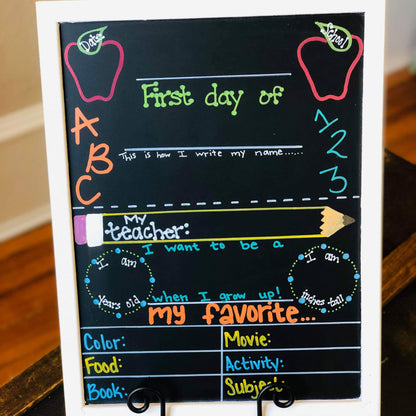 Date:
School:
First day of
A
B
C
1
2
3
This is how I write my name......
My
teacher:
I want to be a
when I grow up!
I am
years old
I am
inches tall
my favorite...
Color: Movie:
Food: Activity:
Book: Subject: